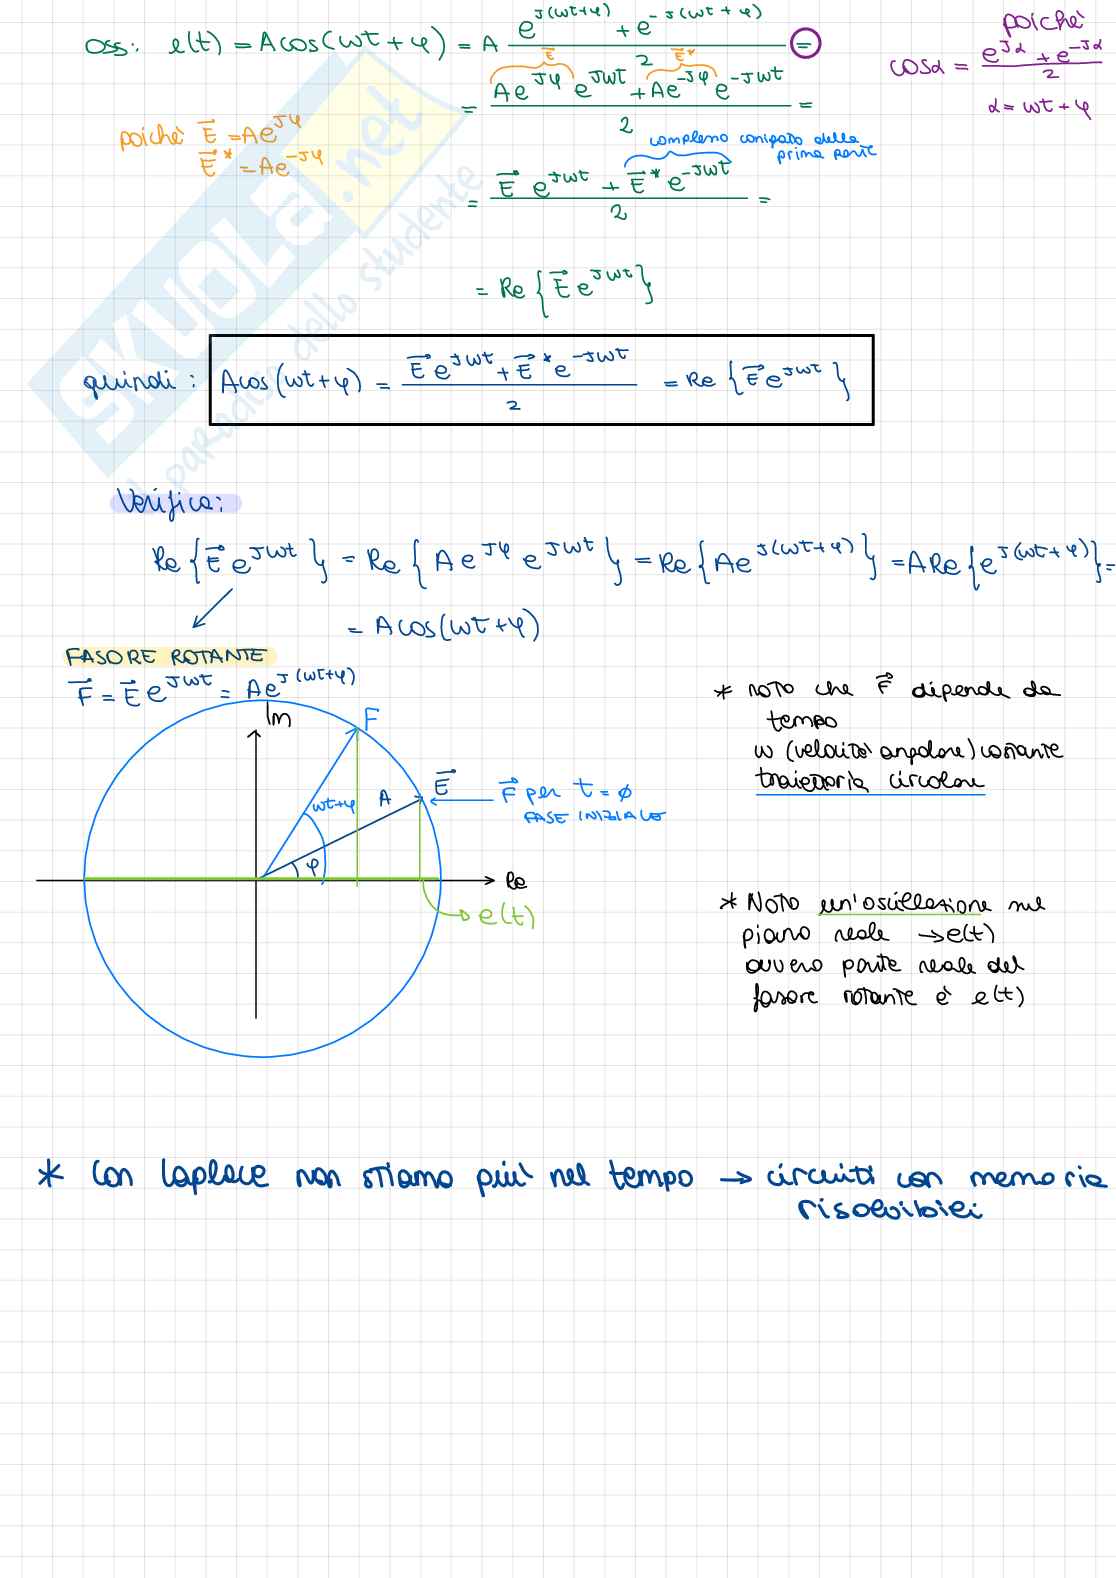 oss: e(t) = A cos(ωt + φ) = A (e^{J(ωt+φ)} + e^{-J(ωt+φ)}) / 2 =
poiché
cosα = (e^{Jα} + e^{-Jα}) / 2
α = ωt + φ
E⃗ E⃗*
= (Ae^{Jφ} e^{Jωt} + Ae^{-Jφ} e^{-Jωt}) / 2 =
poiché E⃗ = Ae^{Jφ}
E⃗* = Ae^{-Jφ}
complesso coniugato della
prima parte
= (E⃗ e^{Jωt} + E⃗* e^{-Jωt}) / 2 =
= Re{E⃗ e^{Jωt}}
quindi: A cos(ωt+φ) = (E⃗ e^{Jωt} + E⃗* e^{-Jωt}) / 2 = Re{E⃗ e^{Jωt}}
Verifica:
Re{E⃗ e^{Jωt}} = Re{A e^{Jφ} e^{Jωt}} = Re{Ae^{J(ωt+φ)}} = A Re{e^{J(ωt+φ)}} =
= A cos(ωt+φ)
FASORE ROTANTE
F⃗ = E⃗ e^{Jωt} = Ae^{J(ωt+φ)}
Im
F
E⃗
A
ωt+φ
φ
F⃗ per t = ø
FASE INIZIALE
Re
e(t)
* noto che F⃗ dipende da
tempo
ω (velocità angolare) costante
traiettoria circolare
* Noto un'oscillazione nel
piano reale → e(t)
ovvero parte reale del
fasore rotante è e(t)
* Con Laplace non stiamo più nel tempo → circuiti con memoria
risolvibili
SKUOLA.net
il paradiso dello studente